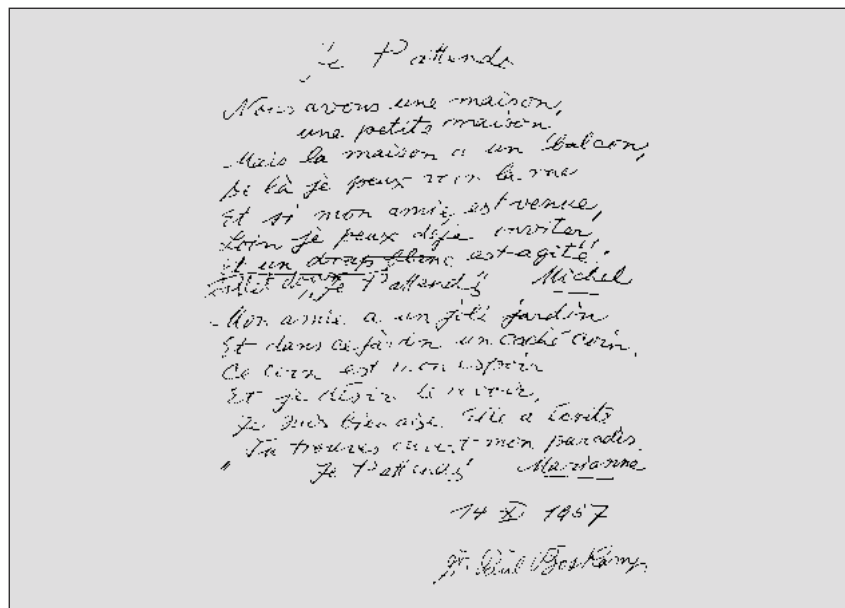 Je t'attends
Nous avons une maison,
une petite maison
Mais la maison a un balcon,
De là je peux voir la rue
Et si mon amie est venue,
Loin je peux déjà inviter
Et un drap blanc est agité"
"Je t'attends" Michel
Mon amie a un joli jardin
Et dans ce jardin un caché coin.
Ce coin est mon espoir
Et je désir le revoir,
Je suis bien aise. Elle a écrite
"Tu trouves ouvert mon paradis
Je t'attends" Marianne
14 XI 1957
Paul